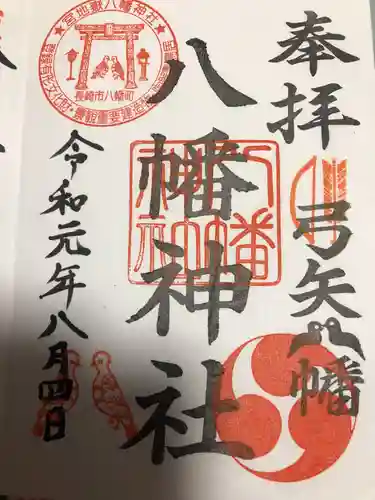 奉拝
弓矢八幡
八幡神社
令和元年八月四日
宮地嶽八幡神社
長崎市八幡町
八幡神社